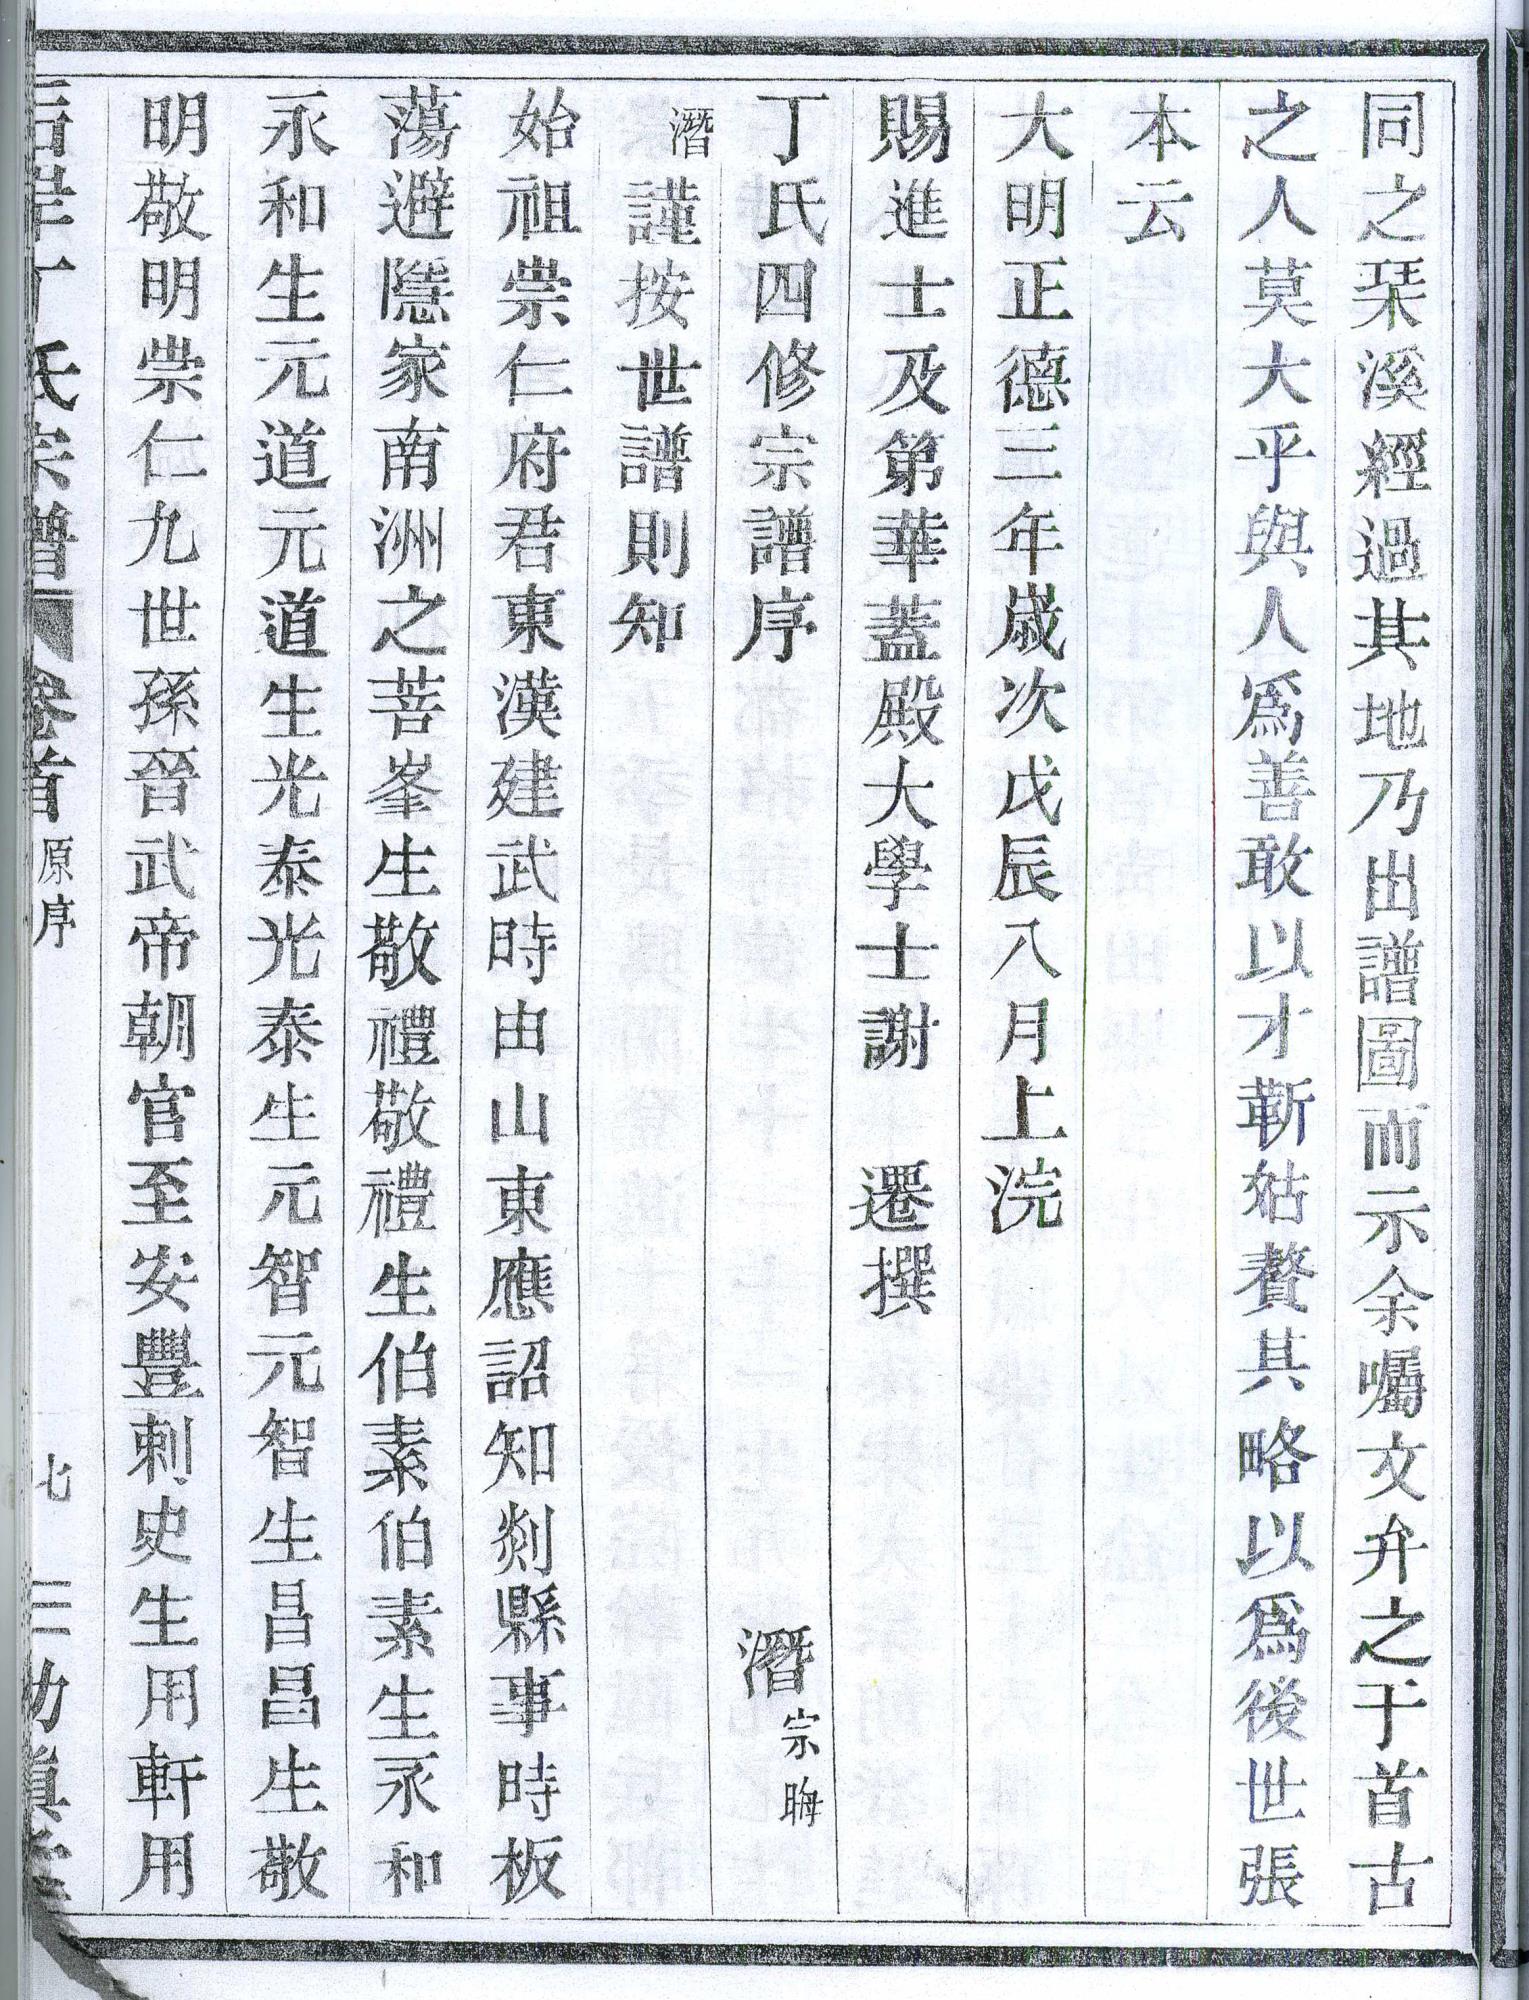 同之琹溪經過其地乃出譜圖而示余囑文弁之于首古
之人莫大乎與人爲善敢以才蔪姑贅其略以爲後世張
本云
大明正德三年歲次戊辰八月上浣
賜進士及第華蓋殿大學士謝 遷撰
丁氏四修宗譜序 潛 宗晦
潛謹按世譜則知
始祖崇仁府君東漢建武時由山東應詔知剡縣事時板
蕩避隱家南洲之菩峯生敬禮敬禮生伯素伯素生永和
永和生元道元道生光泰光泰生元智元智生昌昌生敬
明敬明崇仁九世孫晉武帝朝官至安豐刺史生用軒用
丁氏宗譜 卷首 原序 七